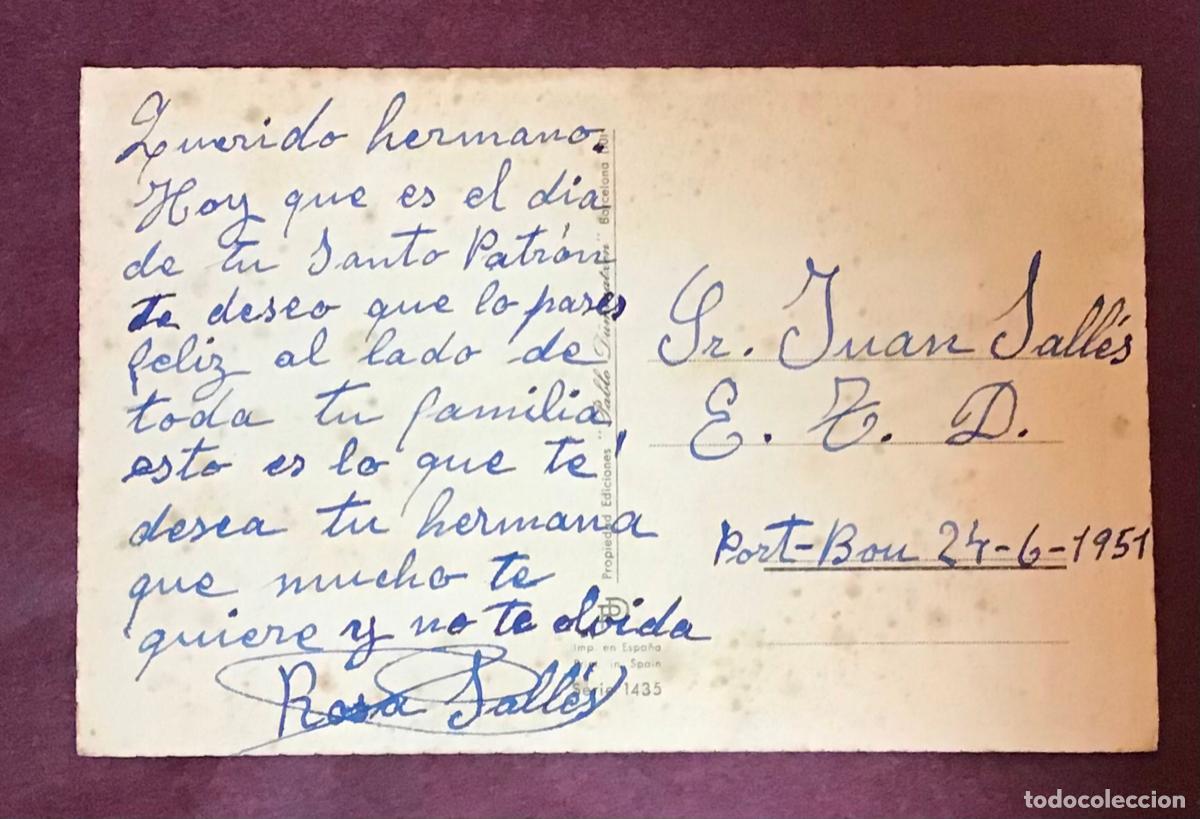 Querido hermano.
Hoy que es el dia
de tu Santo Patrón
te deseo que lo pases
feliz al lado de
toda tu familia,
esto es lo que te
desea tu hermana
que mucho te
quiere y no te olvida
Rosa Sallés
Propiedad Ediciones "Pablo Dümmatzen" Barcelona
Imp. en España
Print. in Spain
Serie 1435
Sr. Juan Sallés
E. T. D.
Port-Bou 24-6-1951
todocoleccion